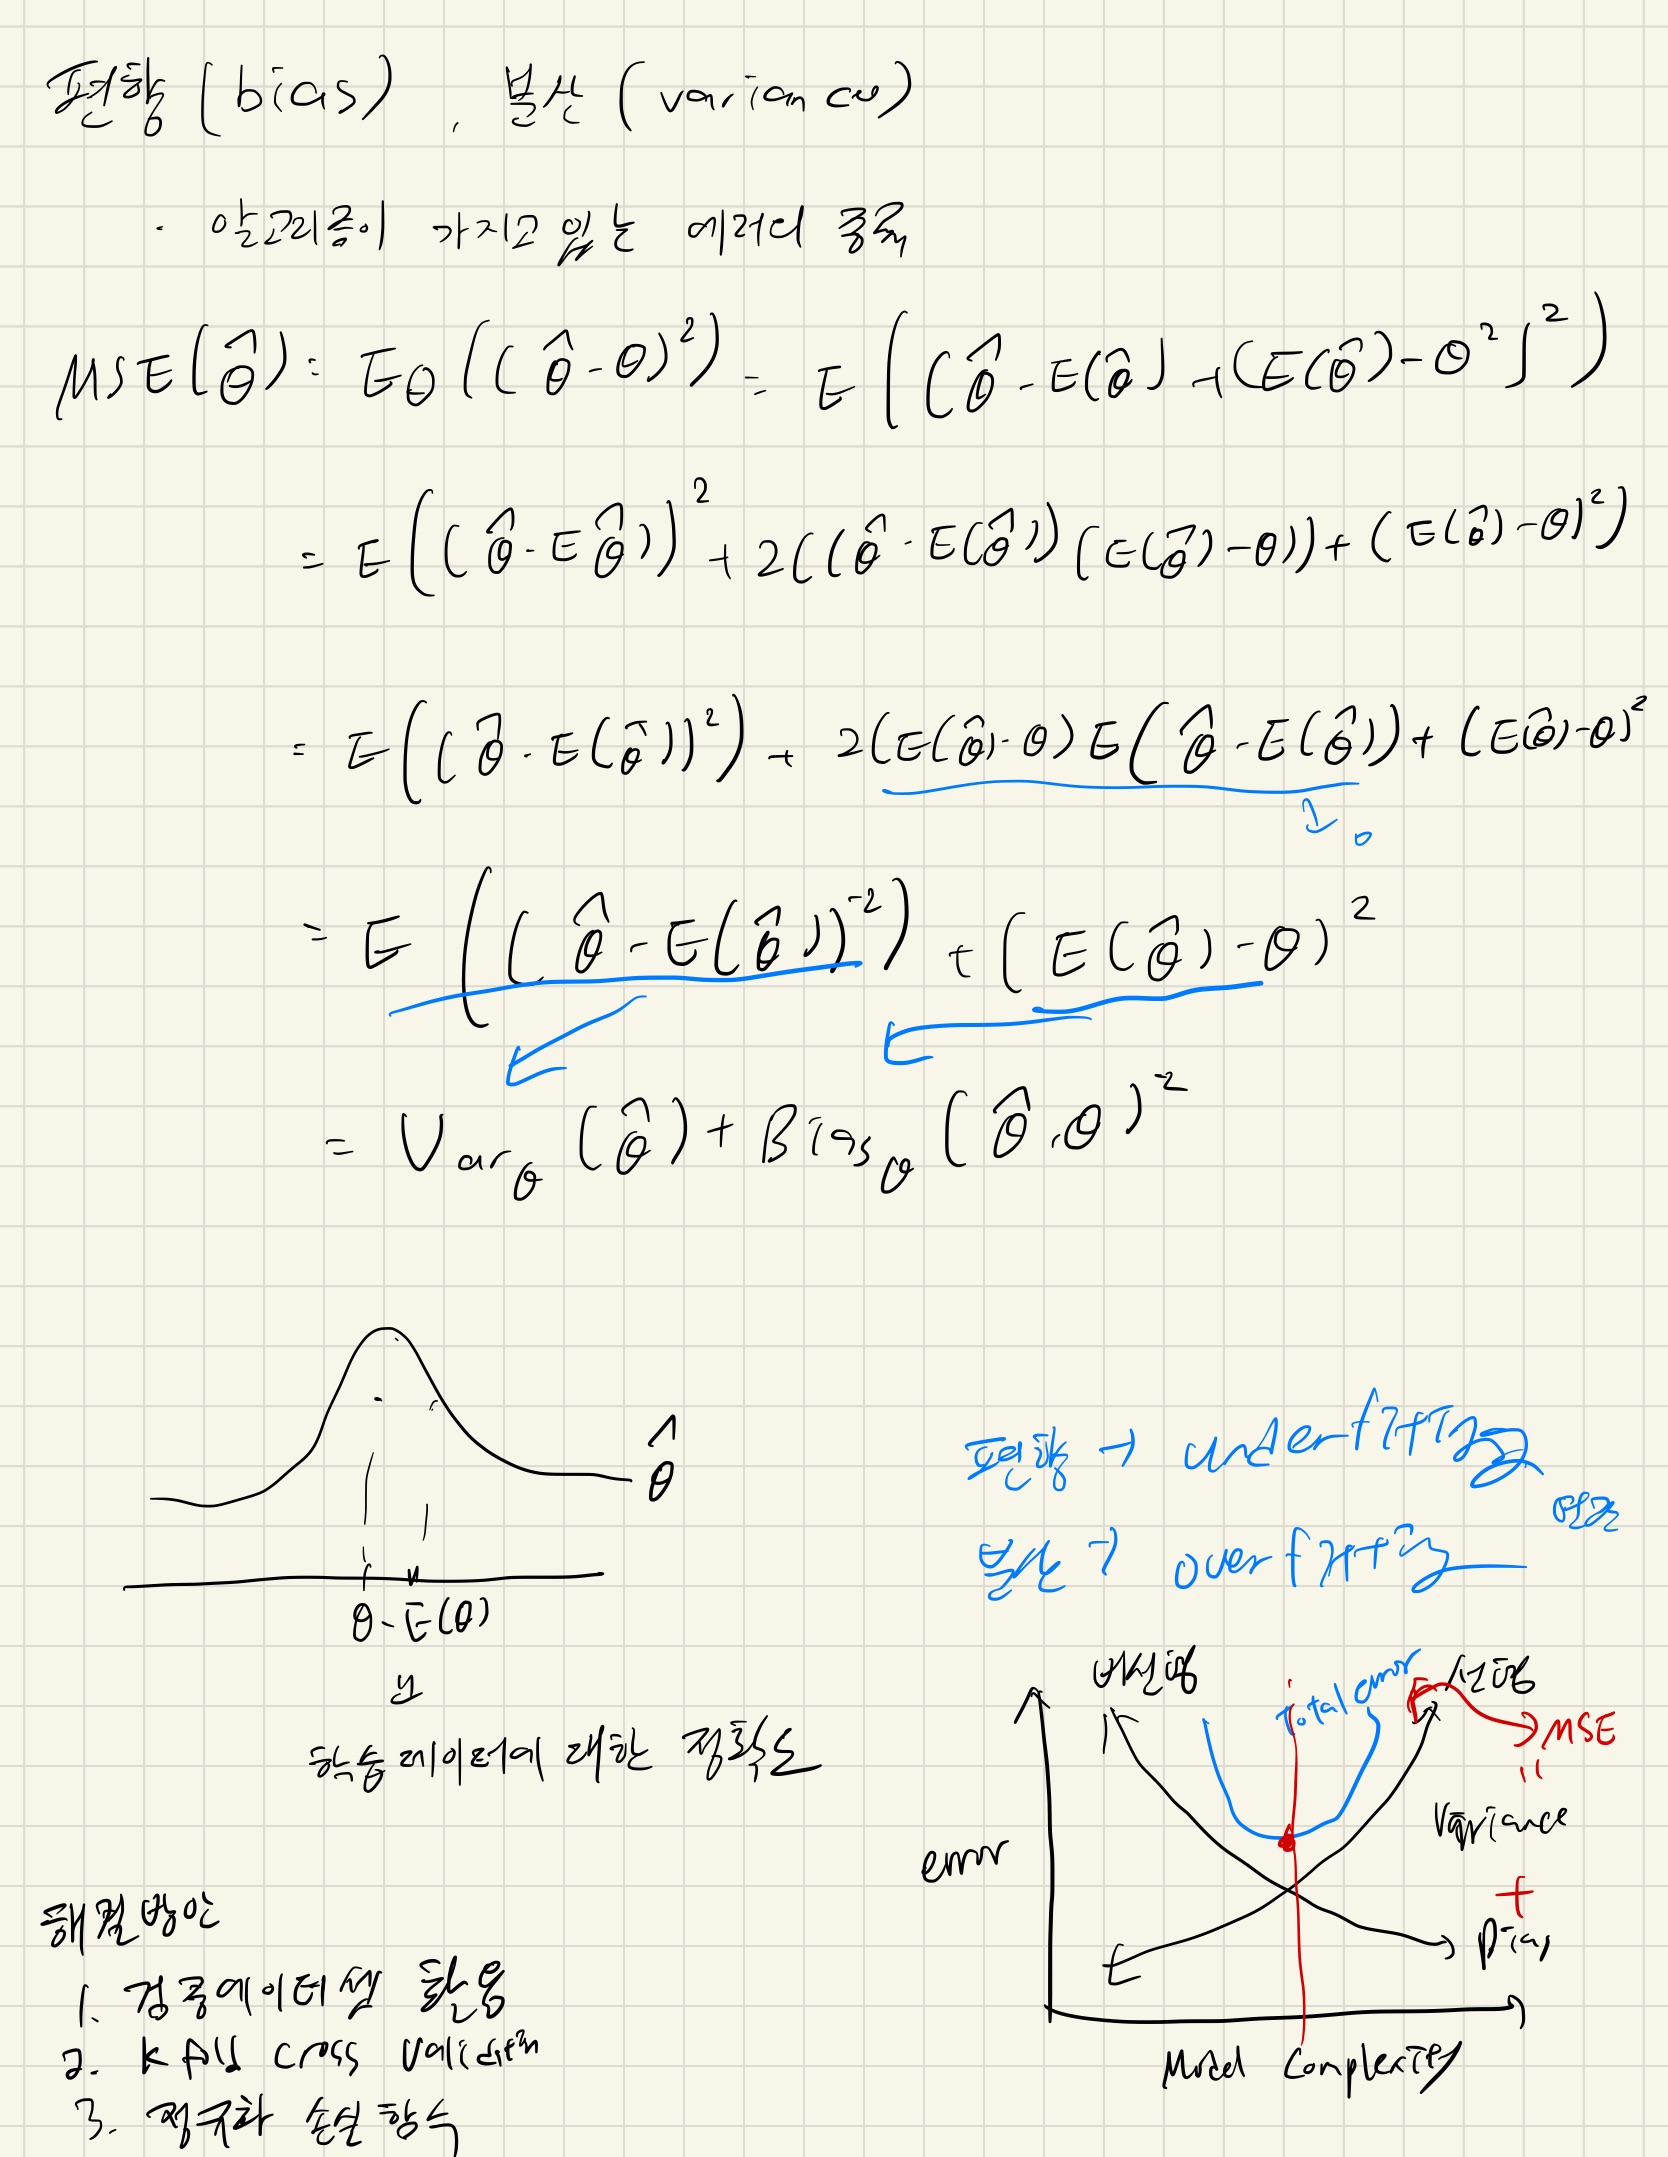 편향 (bias), 분산 (variance)
· 알고리즘이 가지고 있는 에러의 종류
MSE(θ̂) = E_θ((θ̂-θ)²) = E((θ̂-E(θ̂)) + (E(θ̂)-θ²)²)
= E((θ̂-Eθ̂))² + 2((θ̂-E(θ̂))(E(θ̂)-θ)) + (E(θ̂)-θ)²)
= E((θ̂-E(θ̂))²) + 2(E(θ̂)-θ)E(θ̂-E(θ̂)) + (E(θ̂)-θ)²
0
= E((θ̂-E(θ̂))²) + (E(θ̂)-θ)²
= Var_θ(θ̂) + Bias_θ(θ̂,θ)²
θ̂
θ - E(θ)
학습데이터에 대한 정확도
편향 → underfitting
분산 → overfitting
연관
비선형
total error
선형
MSE
=
Variance
+
Bias
error
Model Complexity
해결방안
1. 검증데이터셋 활용
2. K fold cross validation
3. 정규화 손실 함수